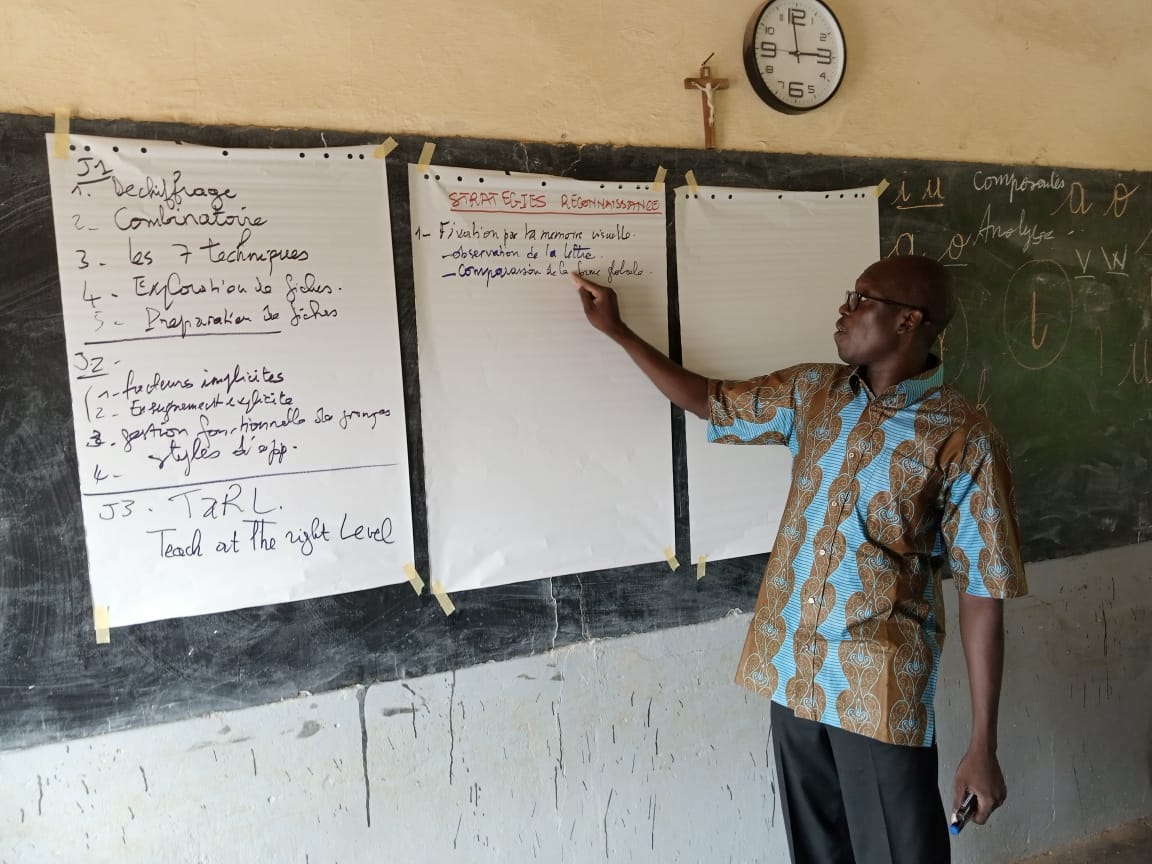 J1
1. Dechiffrage
2. Combinatoire
3. les 7 techniques
4. Exploration de fiches.
5. Préparation de fiches
J2.
1. facteurs implicites
2. Enseignement explicite
3. gestion fonctionnelle de groupes
4. styles d'app.
J3. TaRL.
Teach at the right Level
STRATEGIES RECONNAISSANCE
1- Fixation par la memoire visuelle.
- observation de la lettre.
- Comparaison de la forme globale.
i u
Composantes
a o
Analyse
a o
v w
l
12
2
3
4
5
6
8
9
10